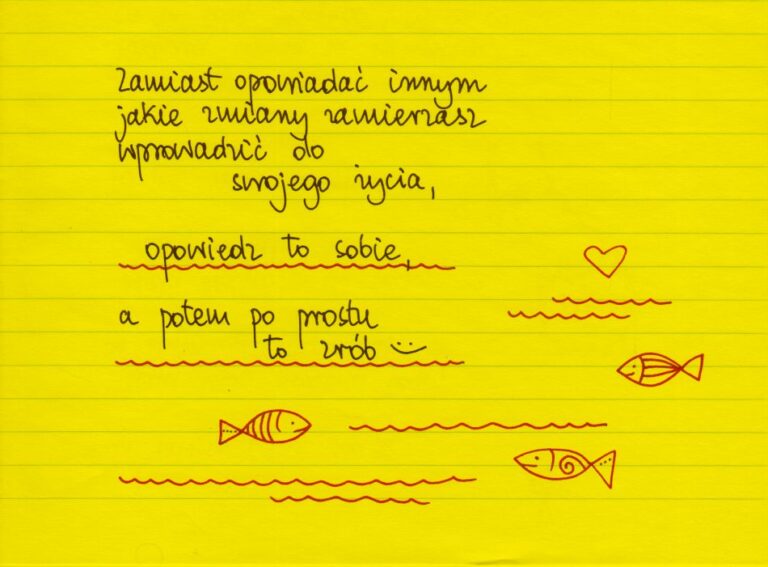 Zamiast opowiadać innym
jakie zmiany zamierzasz
wprowadzić do
swojego życia,
opowiedz to sobie,
a potem po prostu
to zrób :)